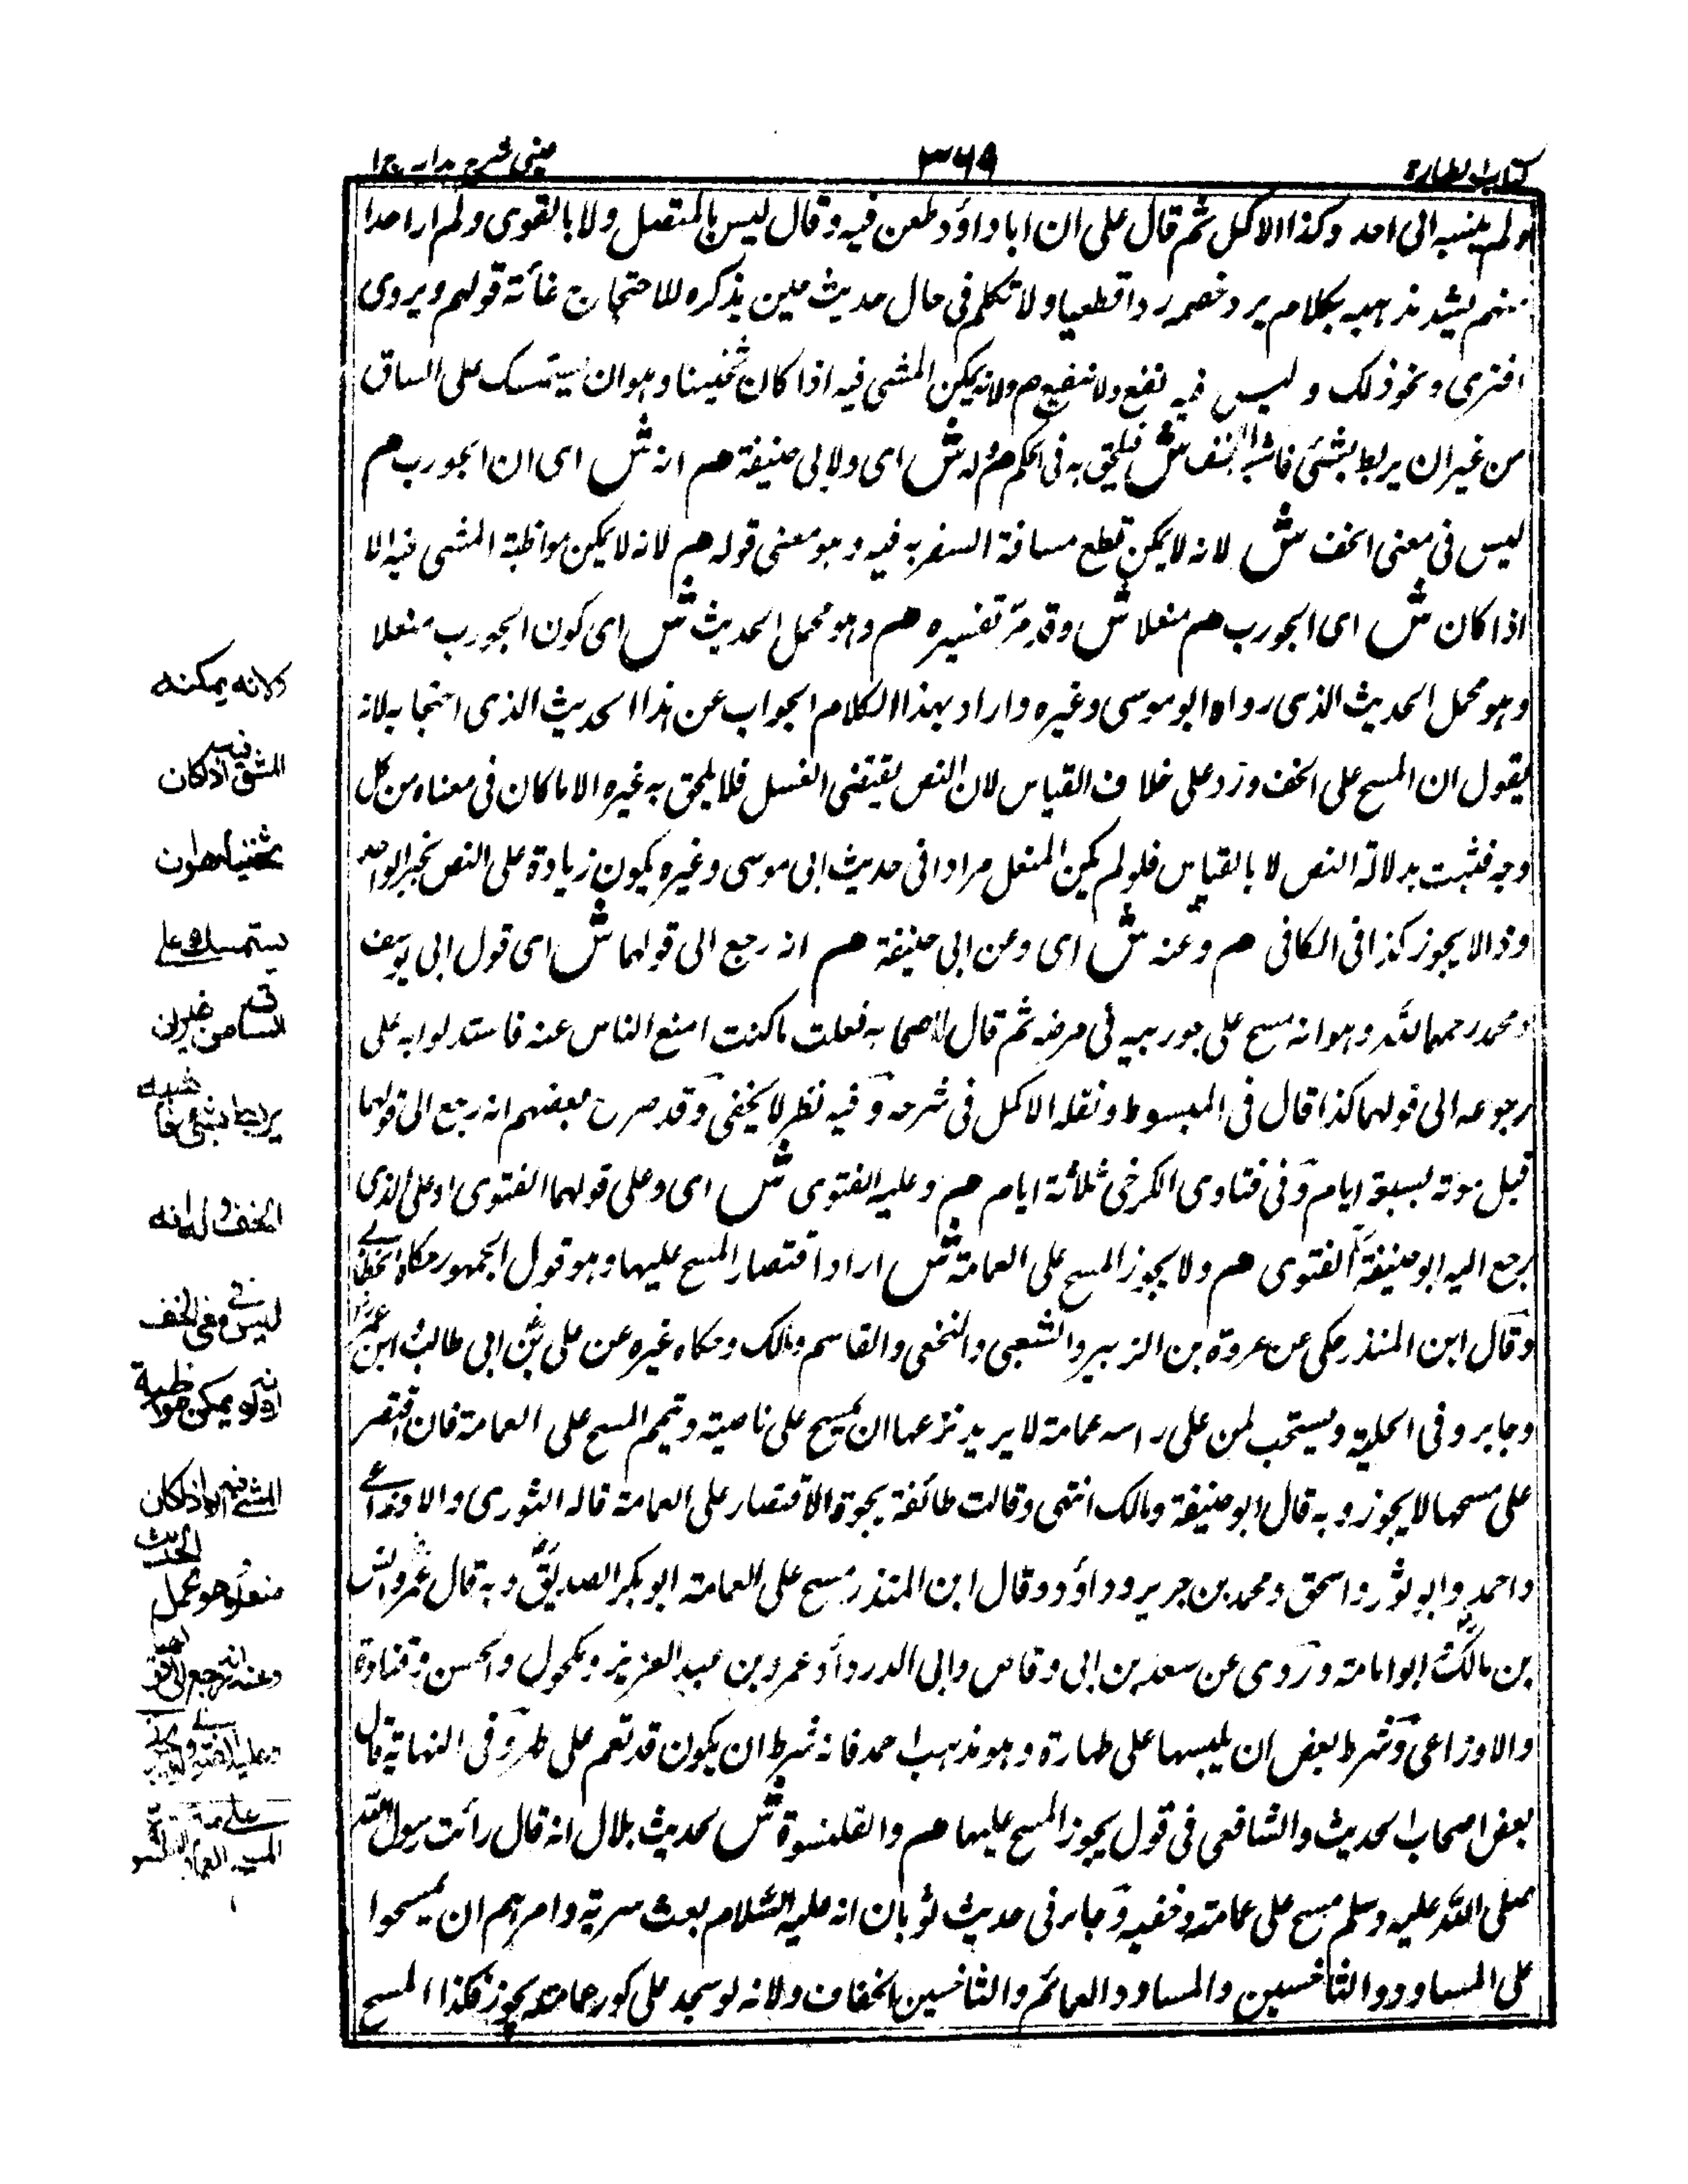 كتاب الطهارة
٣٦٩
عينى شرح هدايه ج١
ولم ينسبه الى احد وكذا الاكمل ثم قال على ان ابا داؤد طعن فيه وقال ليس بالمتصل ولا بالقوى ولم ار احدا
منهم يشيد مذهبه بكلام يرد خصمه ردا قطعيا ولا تكلم فى حال حديث حين يذكره للاحتجاج غائة قولهم ويروى
اخرى ونحو ذلك وليس فيه نفع ولا م ولانه يمكن المشى فيه اذا كان ثخينا وهو ان يستمسك على الساق
من غير ان يربط بشئ فاشبه الخف ش فيلحق به فى الحكم م وله ش اى ولابى حنيفة م انه ش اى ان الجورب م
ليس فى معنى الخف ش لانه لا يمكن قطع مسافة السفر به فيه وهو معنى قوله م لانه لا يمكن مواظبة المشى فيه الا
اذا كان ش اى الجورب م منعلا ش وقد مر تفسيره م وهو محمل الحديث ش اى كون الجورب منعلا
وهو محمل الحديث الذى رواه ابو موسى وغيره واراد بهذا الكلام الجواب عن هذا الحديث الذى احتجا به لانه
يقول ان المسح على الخف ورد على خلاف القياس لان النص يقتضى الغسل فلا يلحق به غيره الا ما كان فى معناه من كل
وجه فثبت بدلالة النص لا بالقياس فلو لم يكن المنعل مرادا فى حديث ابى موسى وغيره يكون زيادة على النص بخبر الواحد
وذا لا يجوز كذا فى الكافى م وعنه ش اى وعن ابى حنيفة م انه رجع الى قولهما ش اى قول ابى يوسف
ومحمد رحمهما الله وهو انه مسح على جوربيه فى مرضه ثم قال لاصحابه فعلت ما كنت امنع الناس عنه فاستدلوا به على
رجوعه الى قولهما كذا قال فى المبسوط ونقله الاكمل فى شرحه وفيه نظر لا يخفى وقد صرح بعضهم انه رجع الى قولهما
قبل موته بسبعة ايام وفى فتاوى الكرخى ثلاثة ايام م وعليه الفتوى ش اى وعلى قولهما الفتوى او على الذى
رجع اليه ابو حنيفة الفتوى م ولا يجوز المسح على العمامة ش اراد اقتصار المسح عليها وهو قول الجمهور حكاه الخطابى
وقال ابن المنذر حكى عن عروة بن الزبير والشعبى والنخعى والقاسم ومالك وحكاه غيره عن على بن ابى طالب وابن عمر
وجابر وفى الحلية ويستحب لمن على راسه عمامة لا يريد نزعها ان يمسح على ناصيته ويتمم المسح على العمامة فان اقتصر
على مسحها لا يجوز وبه قال ابو حنيفة ومالك انتهى وقالت طائفة يجوز الاقتصار على العمامة قاله الثورى والاوزاعى
واحمد وابو ثور واسحق ومحمد بن جرير وداؤد وقال ابن المنذر مسح على العمامة ابو بكر الصديق وبه قال عمر وانس
بن مالك وابو امامة وروى عن سعد بن ابى وقاص وابى الدرداء وعمر بن عبد العزيز ومكحول والحسن وقتادة
والاوزاعى وشرط بعض ان يلبسها على طهارة وهو مذهب احمد فانه شرط ان يكون قد تعمم على طهر وفى النهاية قال
بعض اصحاب الحديث والشافعى فى قول يجوز المسح عليها م والقلنسوة ش لحديث بلال انه قال رأيت رسول الله
صلى الله عليه وسلم مسح على عمامته وخفيه وجابر فى حديث ثوبان انه عليه السلام بعث سرية وامرهم ان يمسحوا
على المساود والثاخسين والمساود العمائم والثاخسين الخفاف ولانه لو سجد على كور عمامته يجوز فكذا المسح
ولانه يمكنه
المشى فيه اذا كان
ثخينا وهو ان
يستمسك على
الساق من غير ان
يربط بشئ فاشبه
الخف وله انه
ليس فى معنى الخف
لانه لا يمكن مواظبة
المشى فيه الا اذا كان
منعلا وهو محمل الحديث
وعنه انه رجع الى
وعليه الفتوى ولا يجوز
المسح على العمامة والقلنسوة